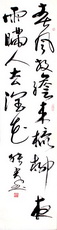 春風放膽來梳柳夜
雨瞞人去潤花